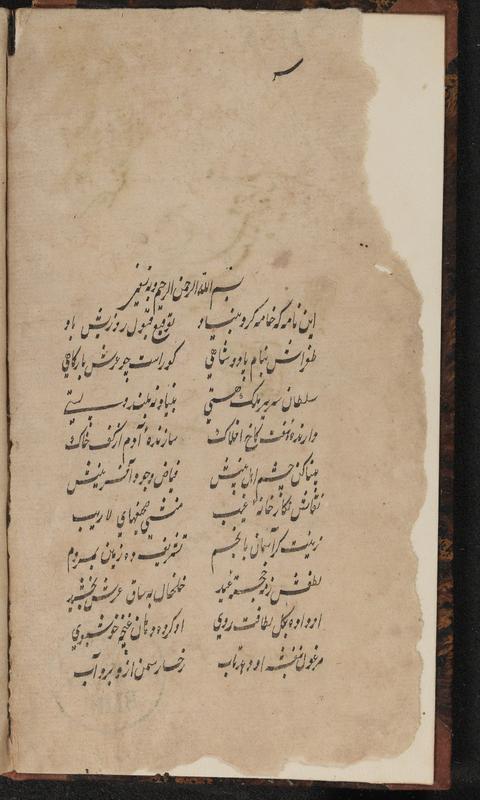 بسم الله الرحمن الرحیم وبه نستعین
این نامه که خامه کرد بنیاد توقیع قبول روزیش باد
طغراش بنام پادشاهی کوراست چو عرش بارگاهی
سلطان سریر ملک هستی بنیاد نه بلند و پستی
دارنده هفت کاخ افلاک سازنده آدم از کف خاک
بیناکن چشم اهل بینش فیاض وجود آفرینش
نقاش نگارخانه غیب منشی صحیفهای لاریب
زینت گر آسمان بانجم تشریف ده زمین بمردم
لطفش ز خجسته خلخال به ساق عرش
او داده بگل لطافت روی او کرده دهان غنچه خوشبوی
مرغول بنفشه او دهد تاب رخسار سمن ازو برد آب